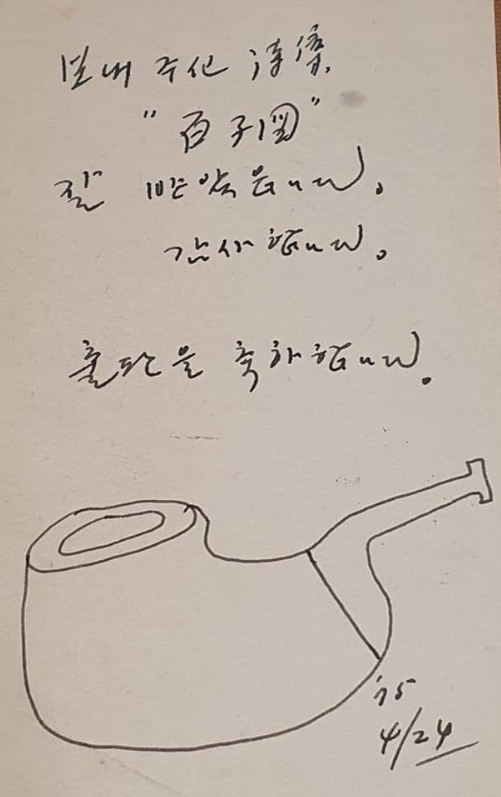 보내 주신 詩集,
"百子圖"
잘 받았읍니다.
감사합니다.
출판을 축하합니다.
'75
4/24